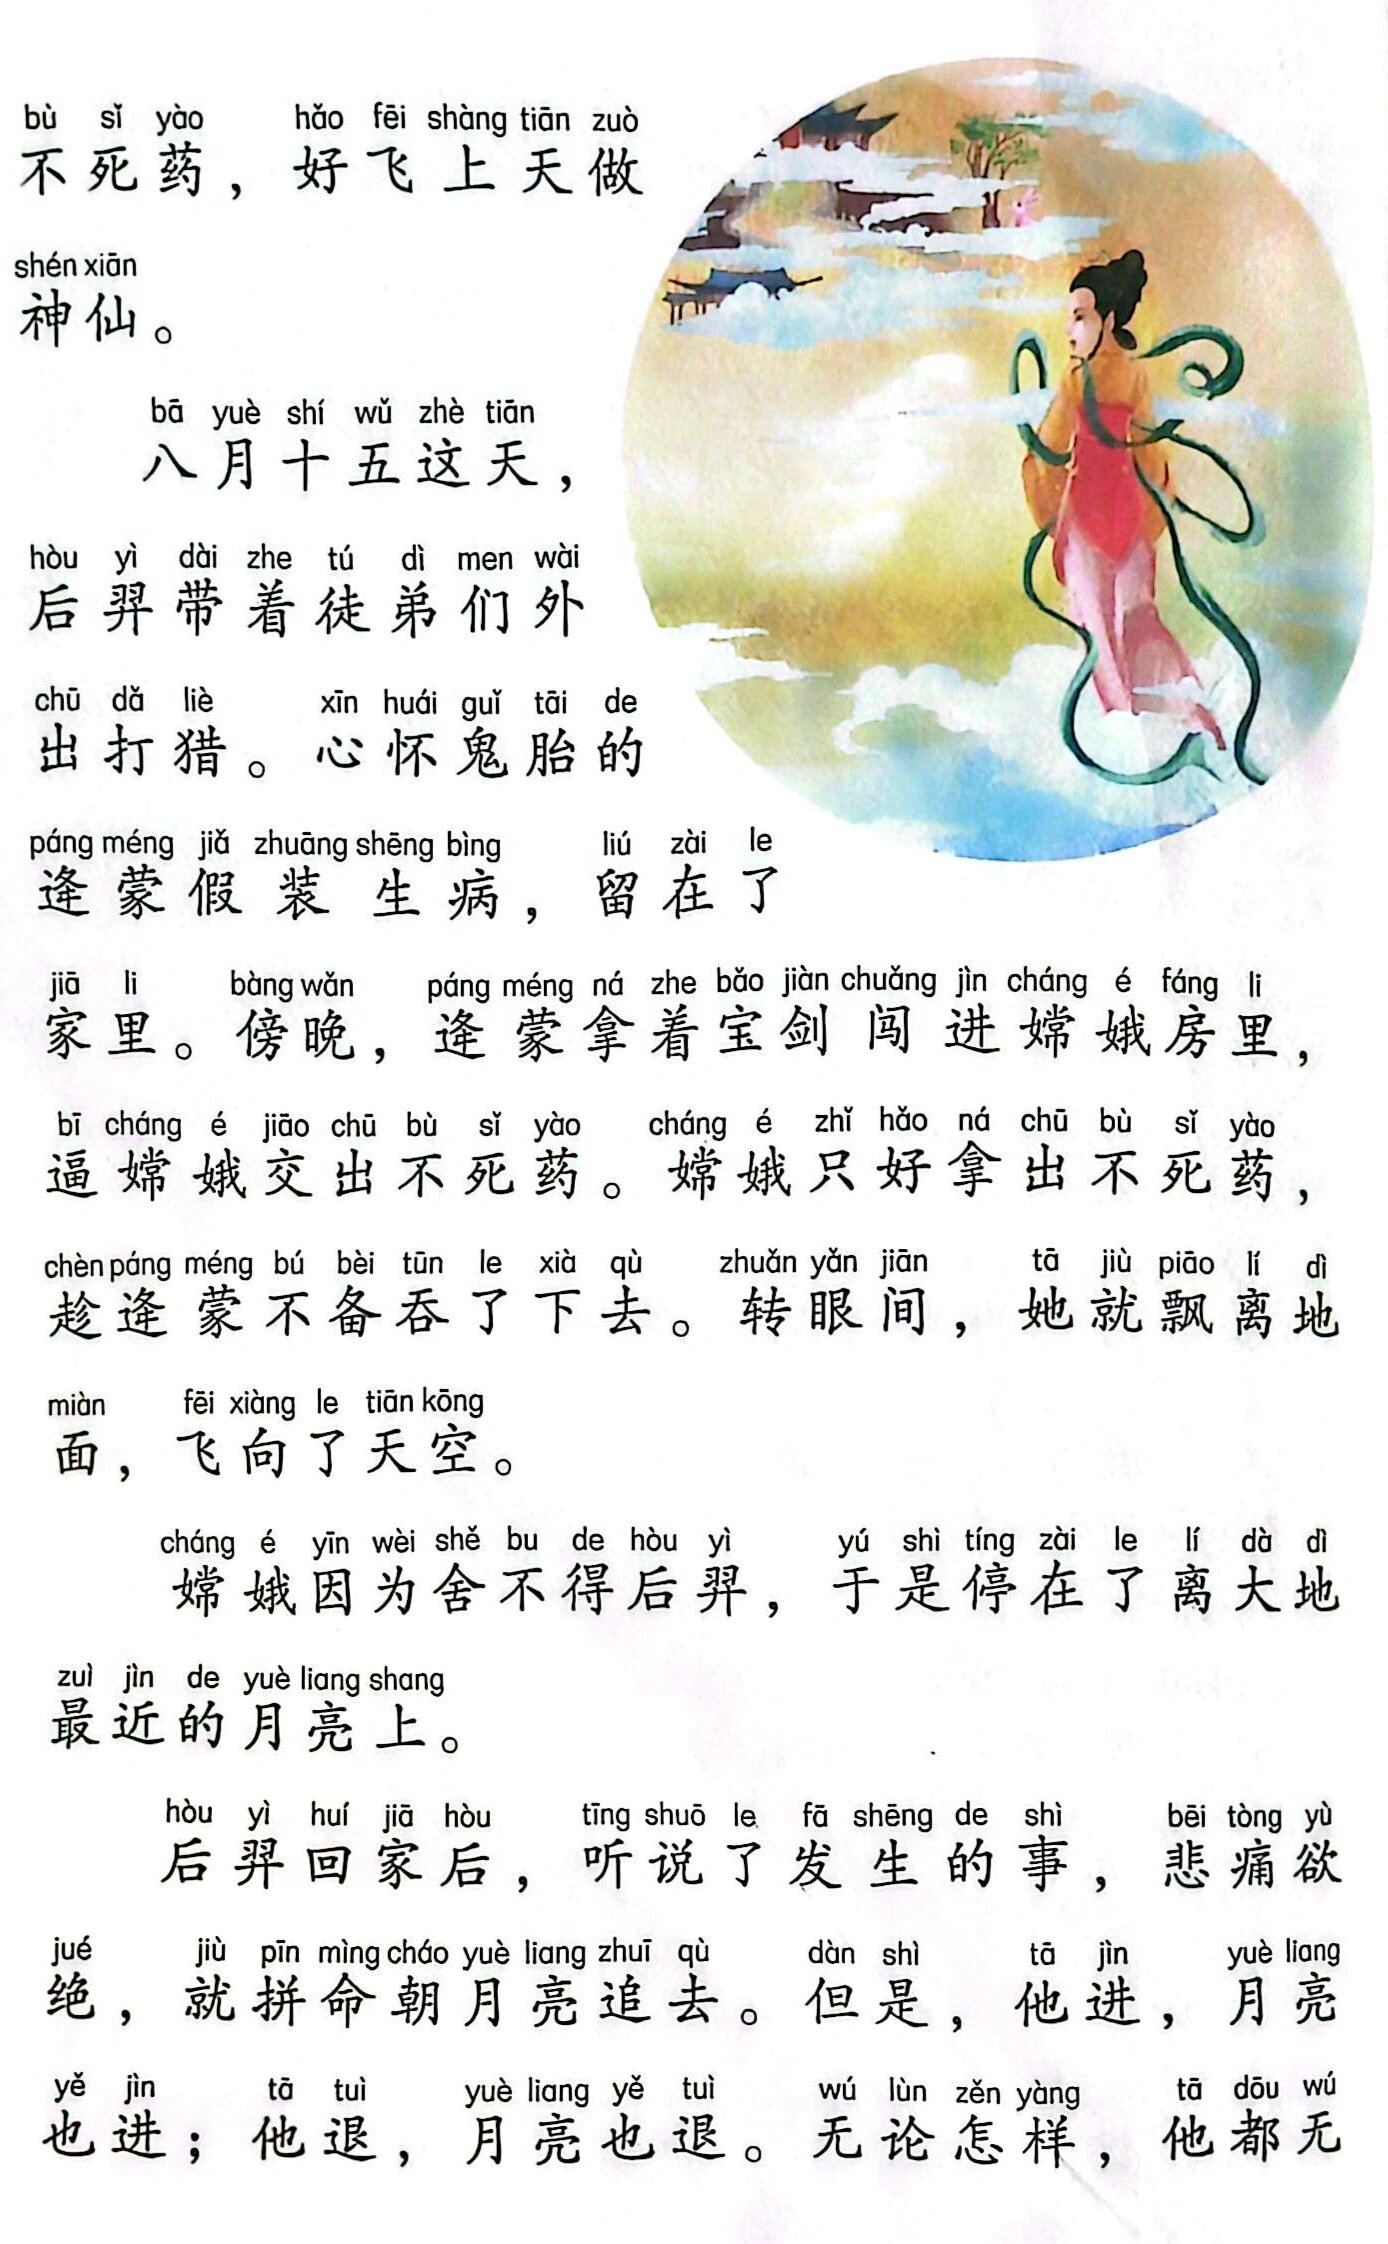 bù sǐ yào hǎo fēi shàng tiān zuò
不死药，好飞上天做
shén xiān
神仙。
bā yuè shí wǔ zhè tiān
八月十五这天，
hòu yì dài zhe tú dì men wài
后羿带着徒弟们外
chū dǎ liè xīn huái guǐ tāi de
出打猎。心怀鬼胎的
páng méng jiǎ zhuāng shēng bìng liú zài le
逄蒙假装生病，留在了
jiā li bàng wǎn páng méng ná zhe bǎo jiàn chuǎng jìn cháng é fáng li
家里。傍晚，逄蒙拿着宝剑闯进嫦娥房里，
bī cháng é jiāo chū bù sǐ yào cháng é zhǐ hǎo ná chū bù sǐ yào
逼嫦娥交出不死药。嫦娥只好拿出不死药，
chèn páng méng bú bèi tūn le xià qù zhuǎn yǎn jiān tā jiù piāo lí dì
趁逄蒙不备吞了下去。转眼间，她就飘离地
miàn fēi xiàng le tiān kōng
面，飞向了天空。
cháng é yīn wèi shě bu de hòu yì yú shì tíng zài le lí dà dì
嫦娥因为舍不得后羿，于是停在了离大地
zuì jìn de yuè liang shang
最近的月亮上。
hòu yì huí jiā hòu tīng shuō le fā shēng de shì bēi tòng yù
后羿回家后，听说了发生的事，悲痛欲
jué jiù pīn mìng cháo yuè liang zhuī qù dàn shì tā jìn yuè liang
绝，就拼命朝月亮追去。但是，他进，月亮
yě jìn tā tuì yuè liang yě tuì wú lùn zěn yàng tā dōu wú
也进；他退，月亮也退。无论怎样，他都无